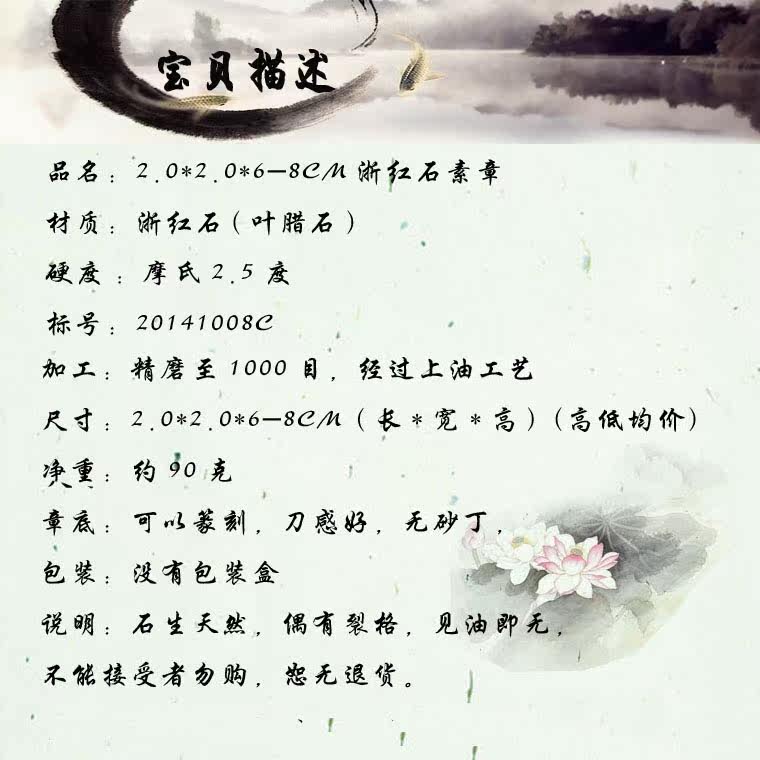 宝贝描述
品名：2.0*2.0*6-8CM浙红石素章
材质：浙红石（叶腊石）
硬度：摩氏2.5度
标号：20141008C
加工：精磨至1000目，经过上油工艺
尺寸：2.0*2.0*6-8CM（长*宽*高）（高低均价）
净重：约90克
章底：可以篆刻，刀感好，无砂丁，
包装：没有包装盒
说明：石生天然，偶有裂格，见油即无，
不能接受者勿购，恕无退货。